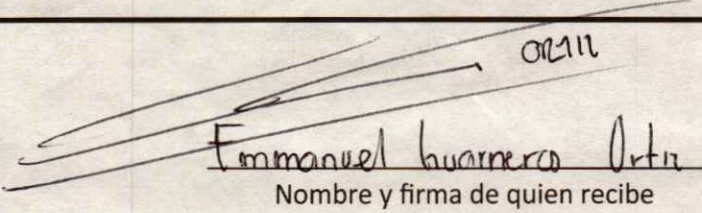 Emmanuel Guarneros Ortiz
Nombre y firma de quien recibe